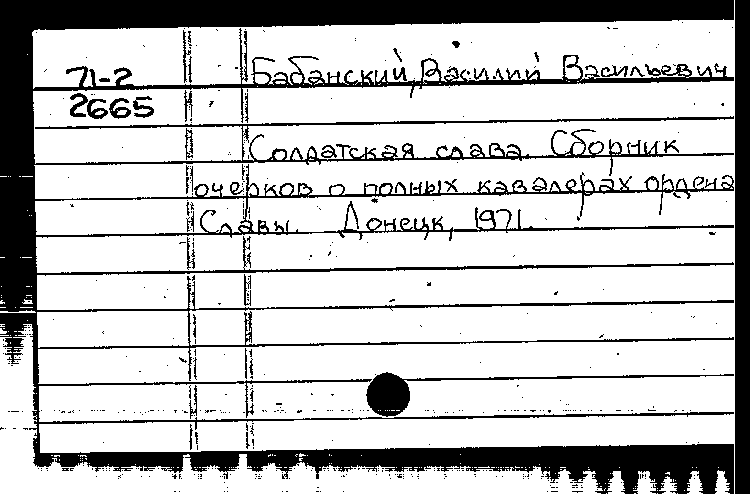 71-2 Бабанский, Василий Васильевич
2665
Солдатская слава. Сборник
очерков о полных кавалерах ордена
Славы. Донецк, 1971.